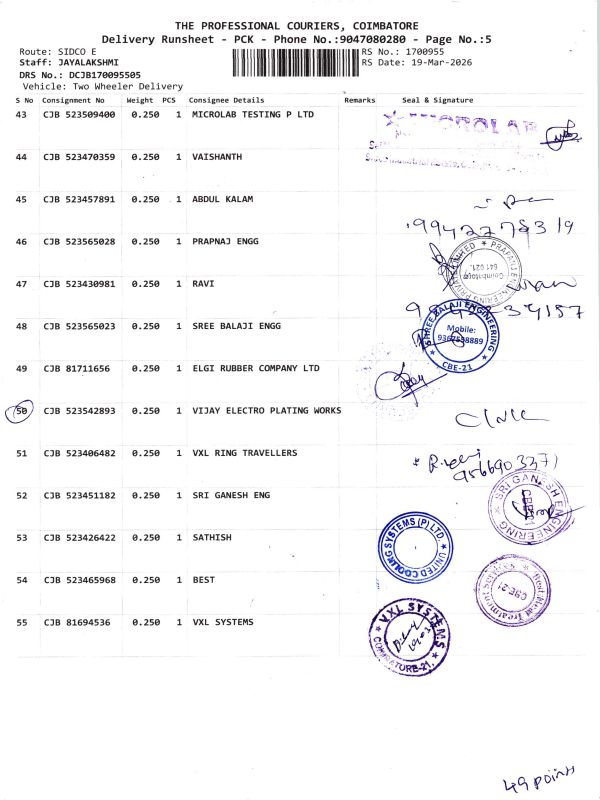 THE PROFESSIONAL COURIERS, COIMBATORE
Delivery Runsheet - PCK - Phone No.:9047080280 - Page No.:5
Route: SIDCO E RS No.: 1700955
Staff: JAYALAKSHMI RS Date: 19-Mar-2026
DRS No.: DCJB170095505
Vehicle: Two Wheeler Delivery
S No Consignment No Weight PCS Consignee Details Remarks Seal & Signature
43 CJB 523509400 0.250 1 MICROLAB TESTING P LTD
MICROLAB
44 CJB 523470359 0.250 1 VAISHANTH
45 CJB 523457891 0.250 1 ABDUL KALAM
46 CJB 523565028 0.250 1 PRAPNAJ ENGG
ENGINEERING PRIVATE LIMITED
Coimbatore
641 021.
47 CJB 523430981 0.250 1 RAVI
48 CJB 523565023 0.250 1 SREE BALAJI ENGG
SHREE BALAJI ENGINEERING
Mobile:
CBE-21
49 CJB 81711656 0.250 1 ELGI RUBBER COMPANY LTD
50 CJB 523542893 0.250 1 VIJAY ELECTRO PLATING WORKS
51 CJB 523406482 0.250 1 VXL RING TRAVELLERS
52 CJB 523451182 0.250 1 SRI GANESH ENG
SRI GANESH ENGINEERING
53 CJB 523426422 0.250 1 SATHISH
UNITED COOLING SYSTEMS (P) LTD.
54 CJB 523465968 0.250 1 BEST
Best Heat Treatment Services
CBE-21
55 CJB 81694536 0.250 1 VXL SYSTEMS
VXL SYSTEMS
COIMBATORE-21.
49 points